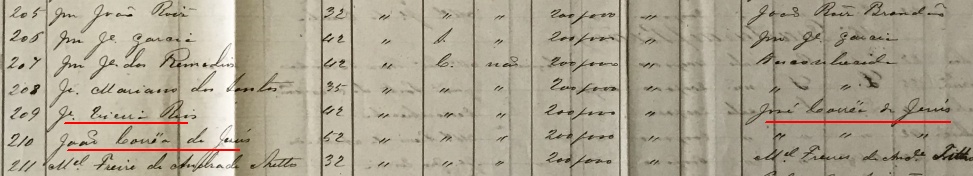 205 Jm João Roiz 32 " " " 200$000 " João Roiz Brandão
206 Jm Je. Garcia 42 " S. " 200$000 " Jm Je. Garcia
207 Jm Je. dos Remedios 42 " C. não 200$000 " Desconhecido
208 Je. Mariano dos Santos 35 " " " 200$000 " " "
209 Je. Vieira Reis 42 " " " 200$000 " José Corrêa de Jesús
210 João Corrêa de Jesús 52 " " " 200$000 " " " "
211 Mel. Freire de Andrade Netto 32 " " " 200$000 " Mel. Freire de Andre.